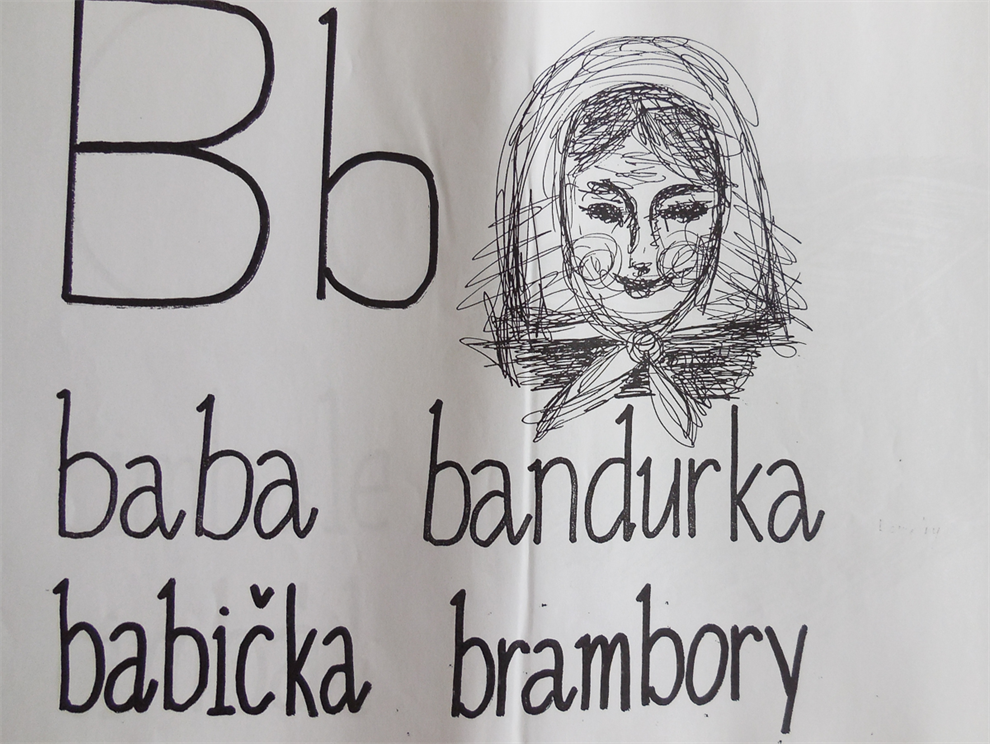 Bb
baba bandurka
babička brambory